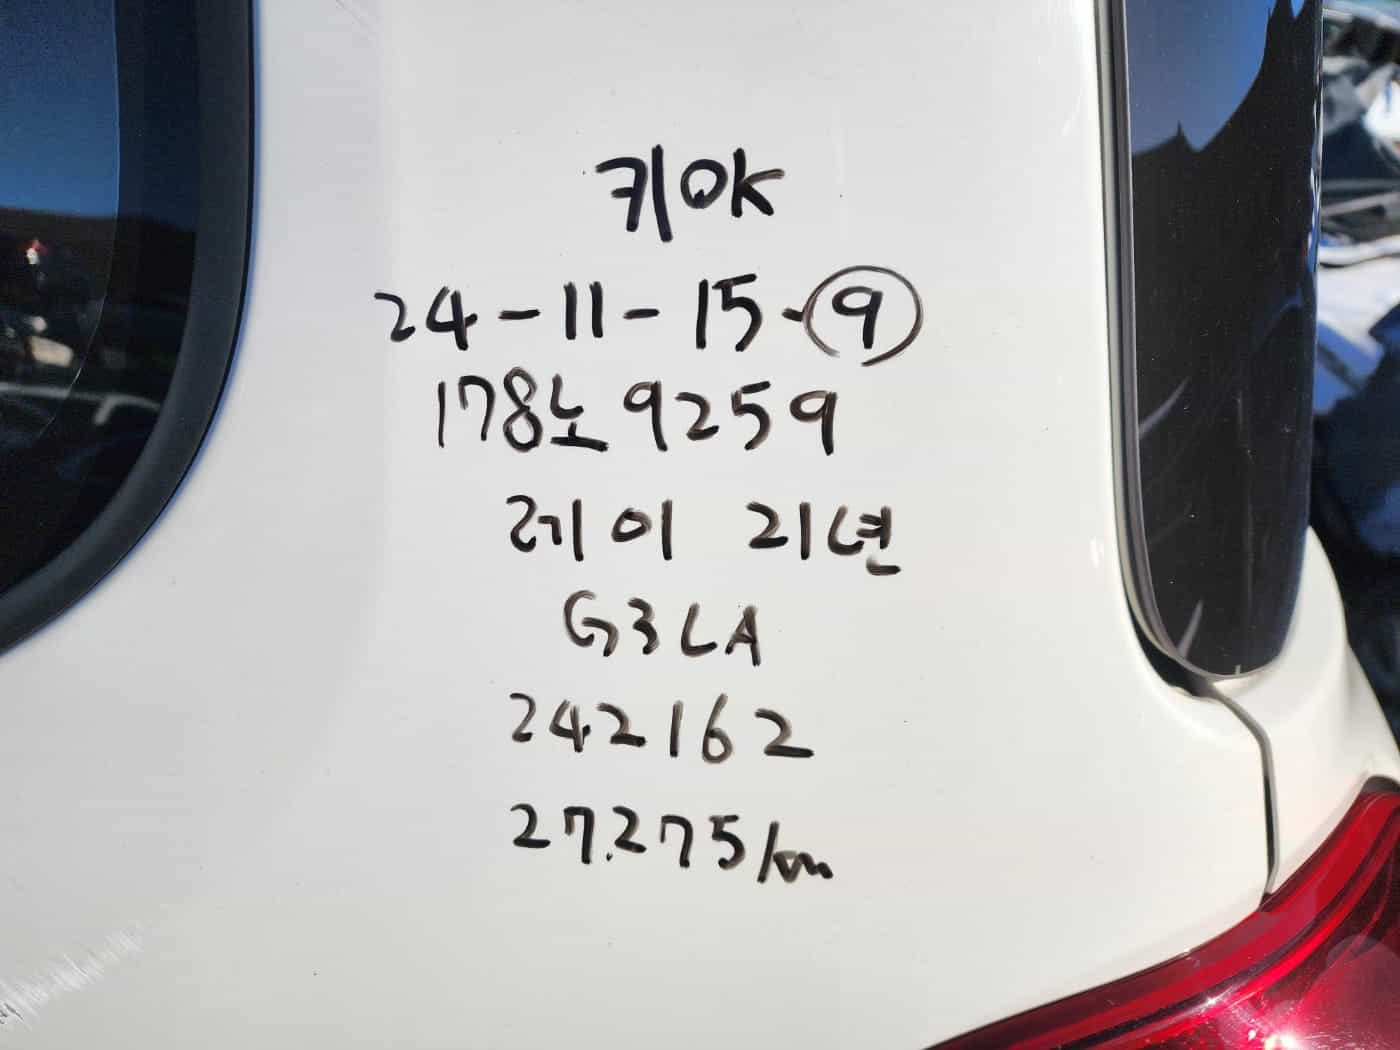 키OK
24-11-15-⑨
178노9259
레이 21년
G3LA
242162
27.275km